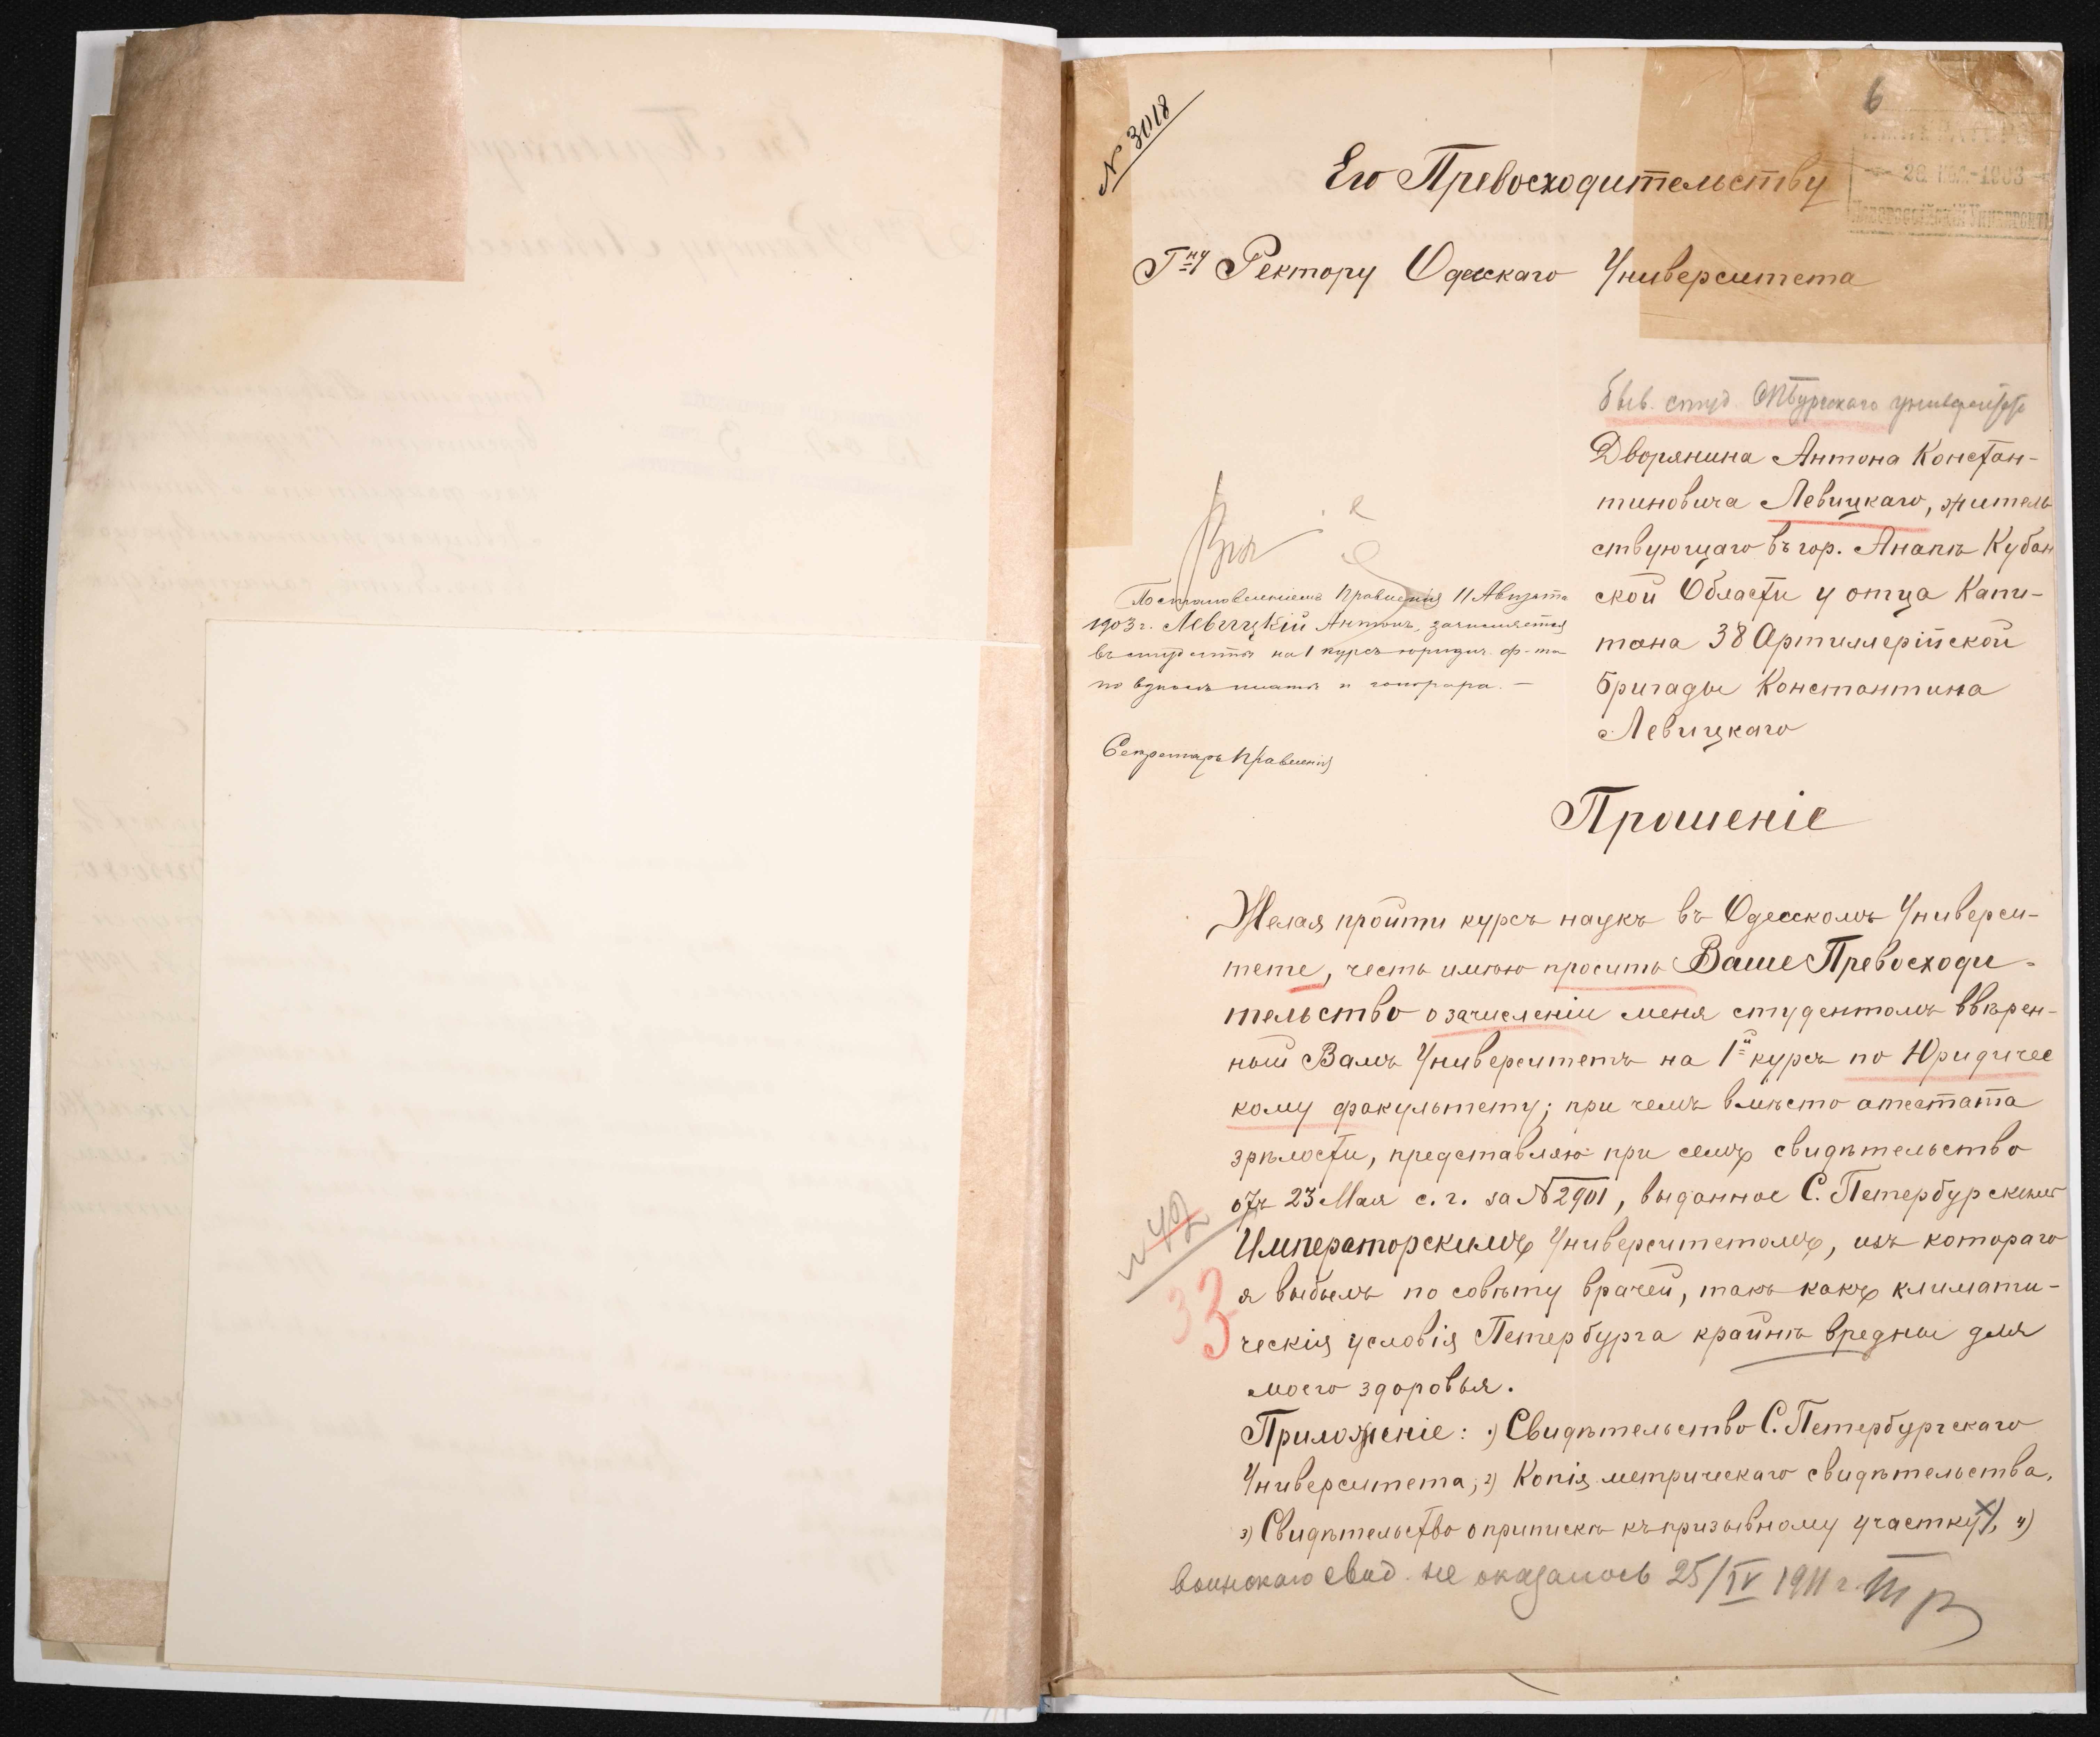 № 3018
6
Его Превосходительству
Г-ну Ректору Одесскаго Университета
Новороссійскій Университ
быв. студ. СПбургскаго университета
Дворянина Антона Констан-
тиновича Левицкаго, житель
ствующаго въ гор. Анапѣ Кубан
ской Области у отца Капи-
тана 38 Артиллерійской
Бригады Константина
Левицкаго
Постановленіемъ Правленія 11 Августа
1903 г. Левицкій Антонъ зачисляется
въ студенты на 1 курсъ юридич. ф-та
по взносѣ платы и гонорара. —
Секретарь Правленія
Прошеніе
Желая пройти курсъ наукъ въ Одесскомъ Универси-
тете, честь имѣю просить Ваше Превосходи-
тельство о зачисленіи меня студентомъ ввѣрен-
ный Вамъ Университетъ на 1й курсъ по Юридичес
кому факультету; при чемъ вмѣсто атестата
зрѣлости, представляю при семъ свидѣтельство
отъ 23 Мая с. г. за № 2901, выданное С. Петербурскимъ
Императорскимъ Университетомъ, изъ котораго
я выбылъ по совѣту врачей, такъ какъ климати-
ческія условія Петербурга крайнѣ вредны для
моего здоровья.
№ 402
33
Приложеніе: 1) Свидѣтельство С. Петербургскаго
Университета, 2) Копія метрическаго свидѣтельства,
3) Свидѣтельство о припискѣ къ призывному участку X), 4)
воинскаго свид. не оказалось 25/IV 1911 г.